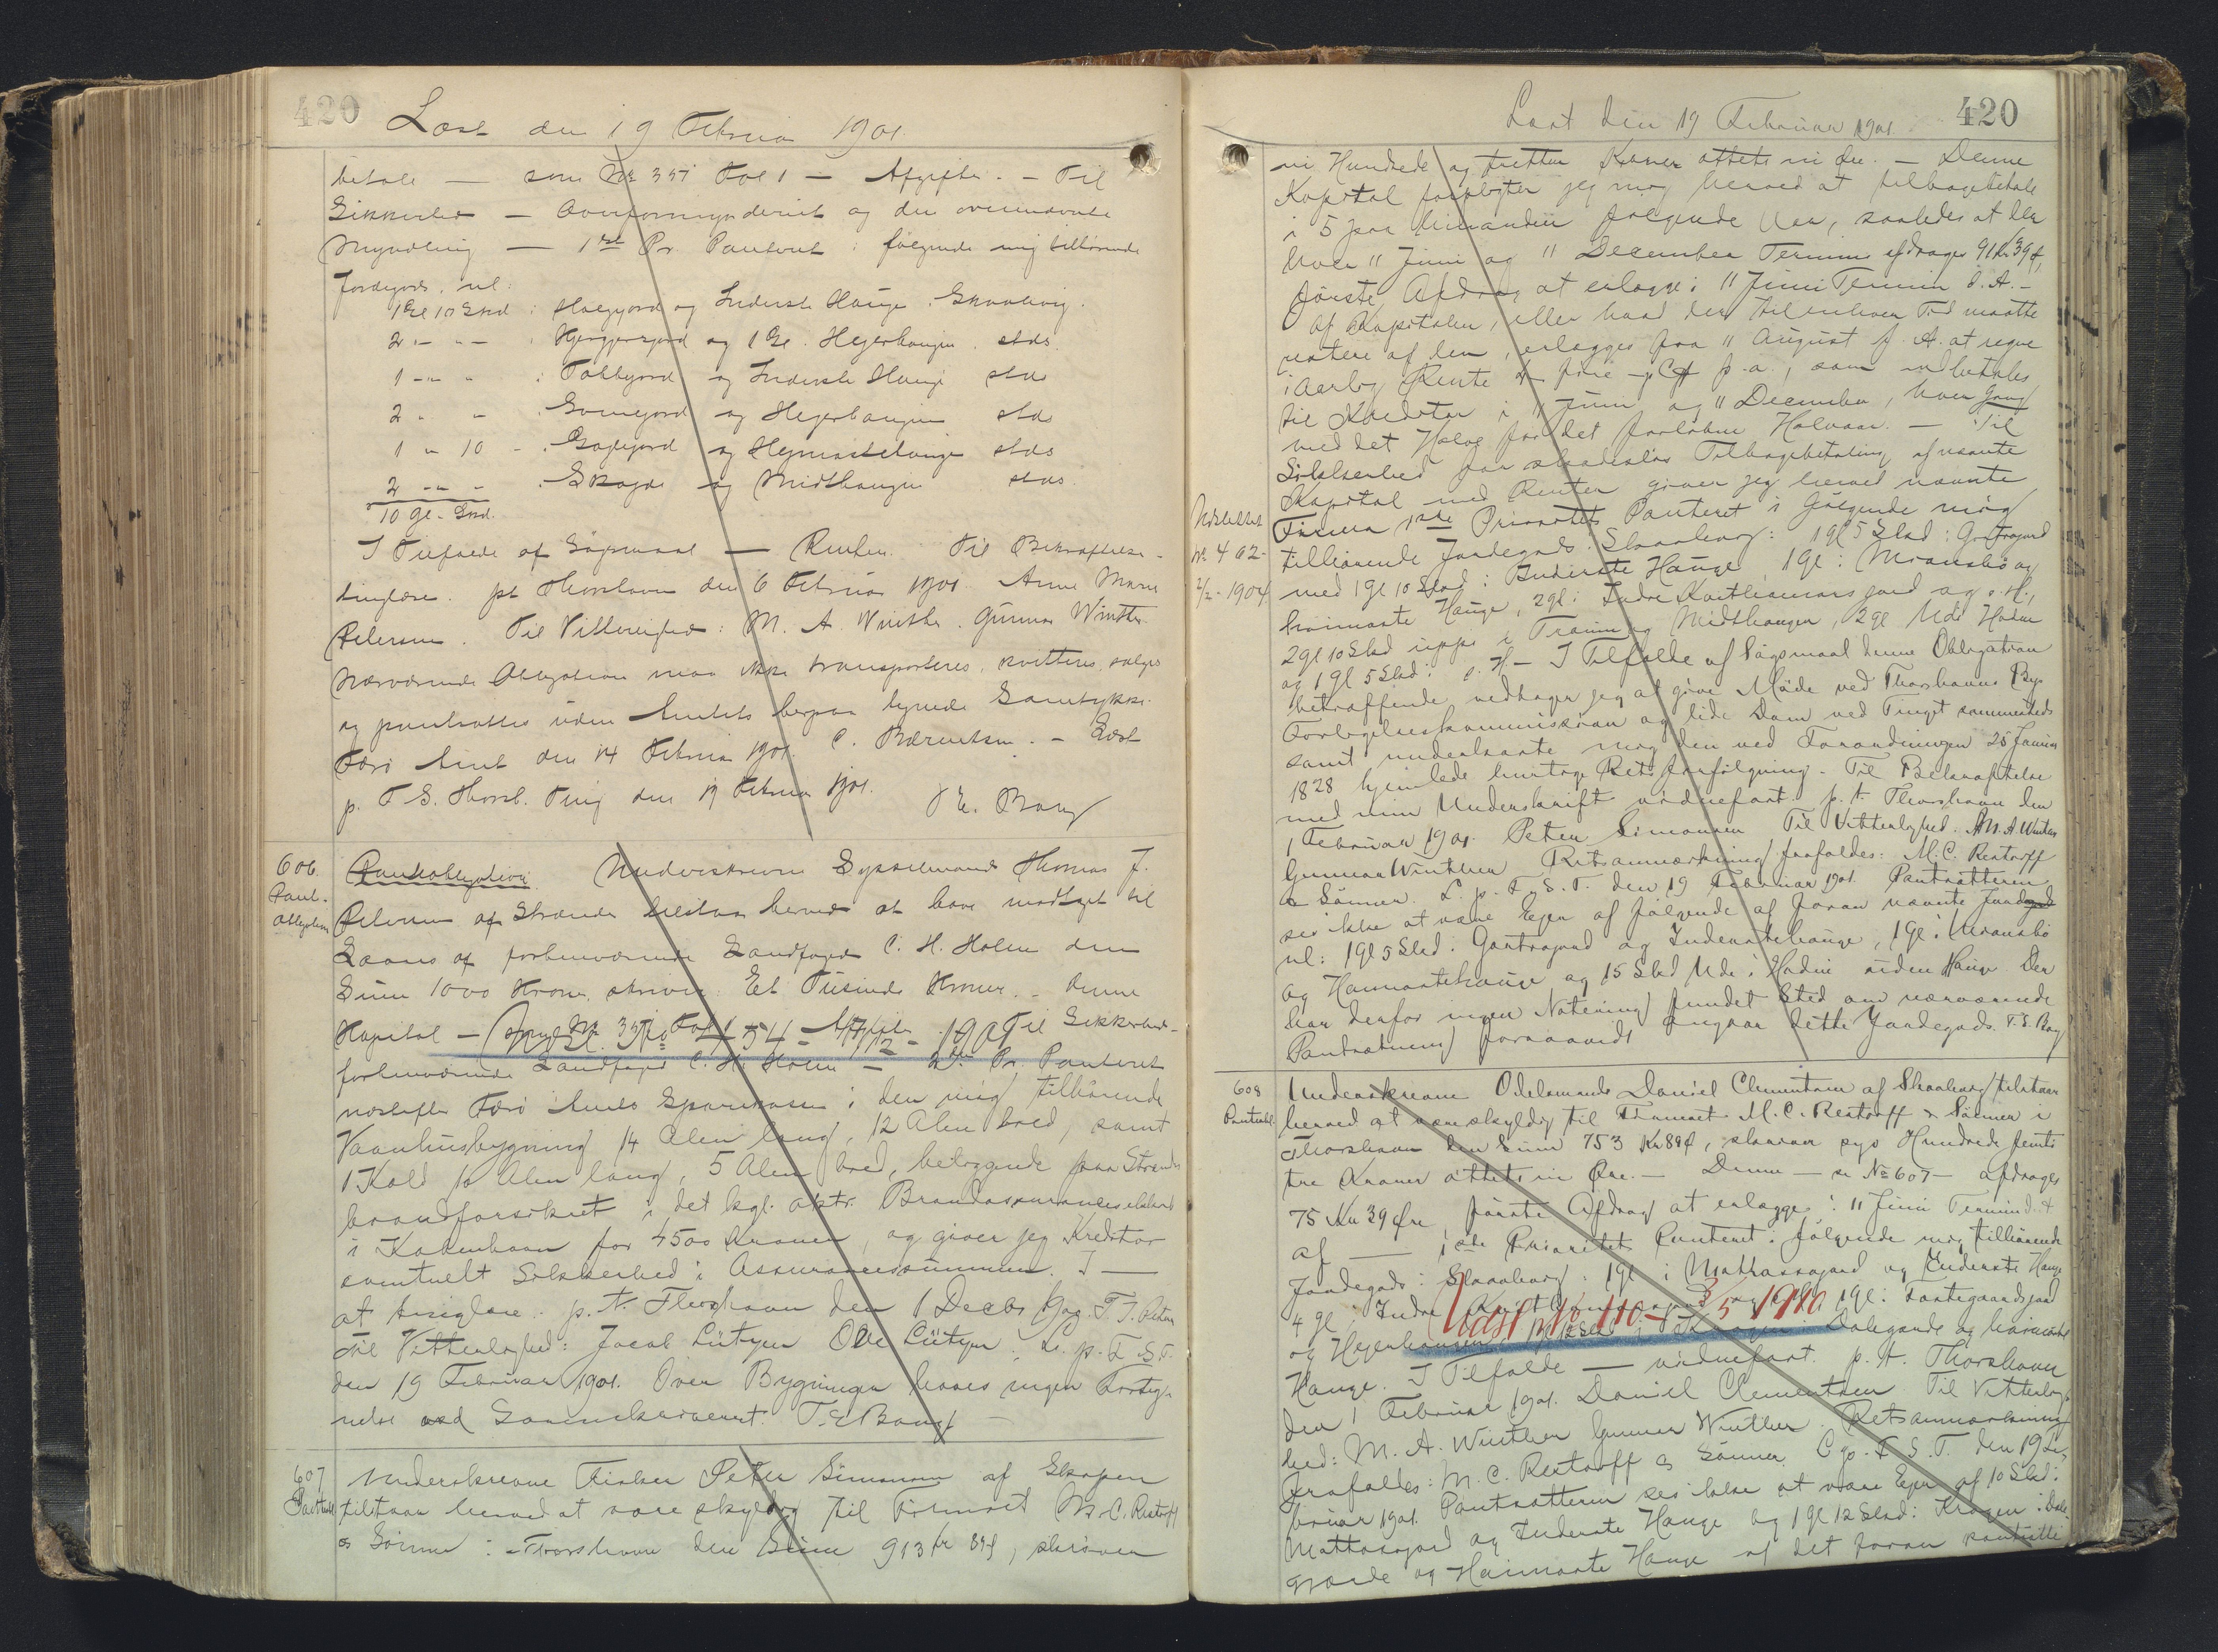 420
Læst den 19 Februar 1901.
betale — som No 337 Fol 1 — Afgifter. — Til
Sikkerhed — Overformynderiet og den ovennævnte
Myndling — 1ste Pr. Panteret i følgende mig tilhørende
Jordegods, nl:
1 Gl 10 Skd i Heegjord og Inderste Hauge. Skaalevig.
2 - " - i og 1 Gl. Hejerhaugen. stds.
1 - " - i Tobbgjord og Inderste Hauge stds
2 - " - i og Hejerhaugen stds
1 " 10 - i og stds
2 - " - i og Midthaugen stds.
10 Gl. - Skd.
I Tilfælde af Søgsmaal — Renten. Til Bekræftelse -
tinglæse. pt Thorshavn den 6 Februar 1901 Anne Marie
Petersen. Til Vitterlighed: M. A. Winther. Gunnar Winther.
Nærværende Obligation maa ikke transporteres, kvitteres, sælges
og pantsættes uden Amtets herpaa tegnede Samtykke.
Færø Amt den 14 Februar 1901. C. Bærentsen. — Læst
p. F. S. Thorsh. Ting den 19 Februar 1901. T. E. Bang
606.
Pant-
obligation
Pantobligation. Underskrevne Sysselmand Thomas J.
Petersen af Strænder tilstaar herved at have modtaget til
Laans af forhenværende Landfoged C. H. Holm den
Sum 1000 Kroner, skriver Et Tusinde Kroner. — Denne
Kapital — som No 337 Fol 1 — Afgifter — Til Sikkerhed -
forhenværende Landfoged C. H. Holm — 2den Pr. Panteret
næstefter Færø Amts Sparekasse i den mig tilhørende
Vaanhusbygning 14 Alen lang, 12 Alen bred, samt
1 Kald 10 Alen lang, 5 Alen bred, beliggende paa Strænder
brandforsikret i det kgl. oktr. Brandassurance
i København for 4500 Kroner, og giver jeg Kreditor
eventuelt Sikkerhed i Assurancesummen. I —
at tinglæse. p. t. Thorshavn den 1 Decbr 1900. T. J. Petersen
Til Vitterlighed: Jacob Lützen Ole Lützen. L. p. F. S. T.
den 19 Februar 1901. Over Bygningen haves ingen Forteg-
nelse ved Sorenskriveriet. T. E. Bang —
607
Pantobl
Underskrevne Fisker Peter Simonsen af Skopen
tilstaar herved at være skyldig til Firmaet M. C. Restorff
& Sønner i Thorshavn den Sum 913 Kr 89 Ø, skriver
Læst den 19 Februar 1901
420
ni Hundrede og tretten Kroner ottets ni Øre. — Denne
Kapital forpligter jeg mig herved at tilbagebetale
i 5 paa hinanden følgende Aar, saaledes at der
hver 11 Juni og 11 December Termin afdrages 91 Kr 39 Ø,
første Afdrag at erlægge i 11 Juni Termin d. A. —
Af Kapitalen, eller hvad der til enhver Tid maatte
restere af den, erlægges fra 11 August f. A. at regne
i aarlig Rente fire pCt p. a., som indbetales
til Kreditor i 11 Juni og 11 December, hver Gang
med det Halve for det forløbne Halvaar. — Til
Sikkerhed for skadesløs Tilbagebetaling af nævnte
Kapital med Renter giver jeg herved nævnte
Firma 1ste Prioritets Panteret i følgende mig
tilhørende Jordegods. Skaalevig: 1 gl 5 Skd i
med 1 gl 10 Skd i Inderste Hauge, 1 gl i og
heimaste Hauge, 2 gl i Indre
2 gl 10 Skd uppe i og Midthaugen, 2 gl Ude i Hødnu
og 1 gl 5 Skd i o. H — I Tilfælde af Søgsmaal denne Obligation
betræffende vedtager jeg at give Møde ved Thorshavns Bys
Forligelseskommission og lide Dom ved Tinget sammesteds
samt underkaste mig den ved Forordningen 25 Januar
1828 hjemlede hurtige Retsforfølgning. — Til Bekræftelse
med min Underskrift vidnefast. p. t. Thorshavn den
1 Februar 1901. Peter Simonsen Til Vitterlighed: M. A. Winther
Gunnar Winther Retsanmærkning frafaldes: M. C. Restorff
& Sønner. L. p. F. S. T. den 19 Februar 1901. Pantsætteren
ses ikke at være Ejer af følgende af foran nævnte Jordegods
nl: 1 gl 5 Skd. og Inderstehauge, 1 gl i
og Heimastehauge og 15 Skd Ude i Hødnu uden Hauge. Der
har derfor ingen Notering fundet Sted om nærværende
Pantsætning forsaavidt angaar dette Jordegods. T. E. Bang
Udslettet
No 402 -
- 1904.
608
Pantobl.
Underskrevne Odelsmand Daniel Clementsen af Skaalevig tilstaar
herved at være skyldig til Firmaet M. C. Restorff & Sønner i
Thorshavn den Sum 753 Kr 89 Ø, skriver syv Hundrede femti
tre Kroner ottets ni Øre. — Denne — se No 607 — afdrages
75 Kr 39 Øre, første Afdrag at erlægge i 11 Juni Termin d. A
af — 1ste Prioritets Panteret i følgende mig tilhørende
Jordegods: Skaalevig: 1 gl i og Inderste Hauge
4 gl i Indre 1 gl i
og Hejerhaugen og heimaste
Hauge. I Tilfælde — vidnefast. p. t. Thorshavn
den 1 Februar 1901. Daniel Clementsen Til Vitterlig-
hed: M. A. Winther Gunnar Winther Retsanmærkning
frafaldes: M. C. Restorff & Sønner. L. p. F. S. T. den 19 Fe-
bruar 1901. Pantsætteren ses ikke at være Ejer af 10 Skd i
og Inderste Hauge og 1 gl 12 Skd i
og Heimaste Hauge af det foran pantsatte